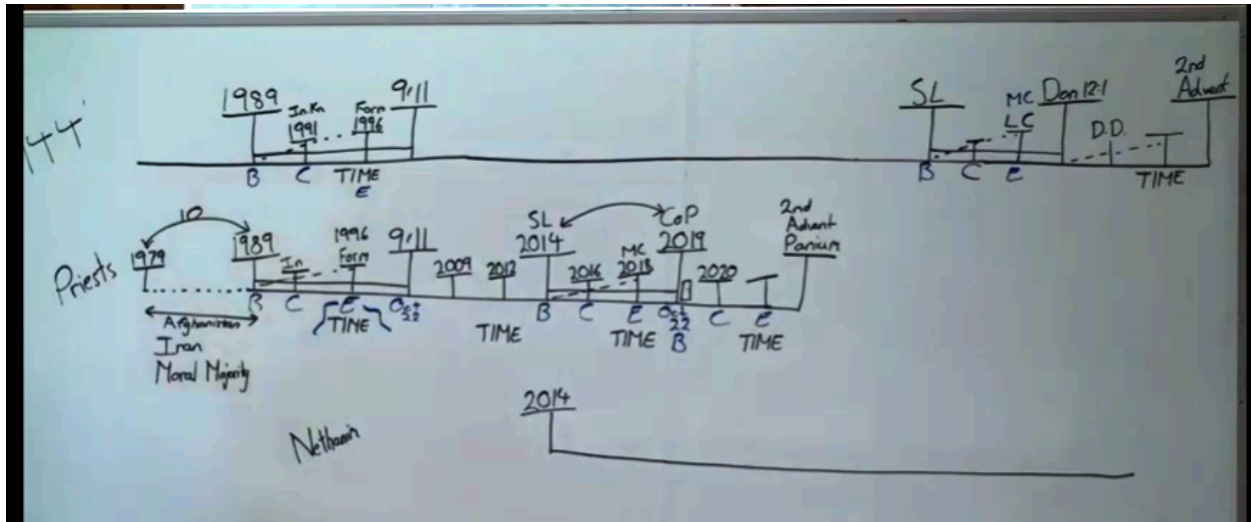 144
1989
In.Kn
1991
Form
1996
9/11
B C TIME
E
SL
MC
LC
Dan 12:1
D.D.
2nd
Advent
B C E TIME
Priests
10
1979
1989
In
1996
Form
9/11
2009
2012
SL
2014
2016
MC
2018
CoP
2019
2020
2nd
Advent
Panium
B C E Oct
22
B C E Oct
22
B
C E
TIME TIME TIME TIME
Afghanistan
Iran
Moral Majority
2014
Nethanim